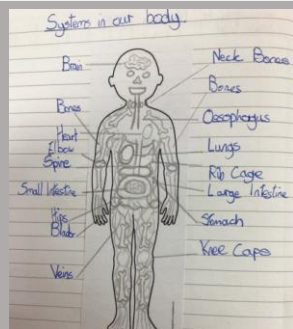 Systems in our body
Brain
Bones
Heart
Elbow
Spine
Small Intestine
Hips
Veins
Neck Bones
Bones
Oesophagus
Lungs
Rib Cage
Large Intestine
Stomach
Knee Caps